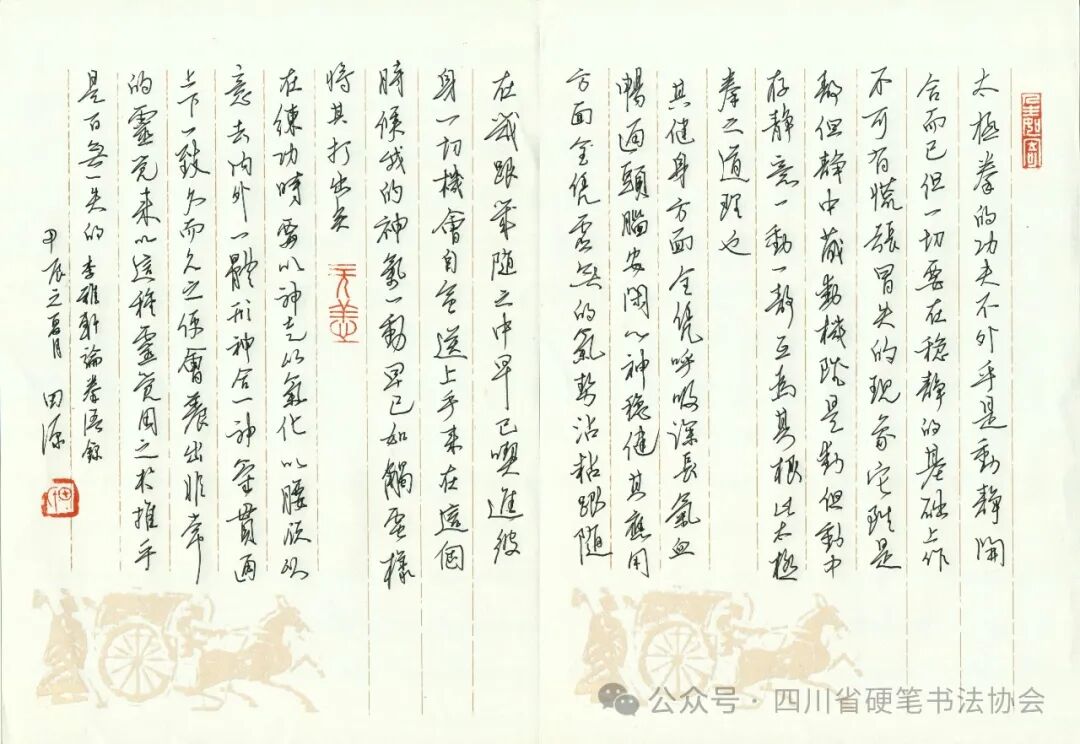 太極拳的功夫不外乎是動靜開
合而已但一切要在穩靜的基础上作
不可有慌張冒失的現象它雖是
静但静中藏動機雖是動但動中
存静意一動一静互為其根此太極
拳之道理也
其健身方面全凭呼吸深長氣血
暢通頭腦安閑心神穩健其應用
方面全凭虚無的氣勢沾粘跟随
在我跟笨随之中早已喫進彼
身一切機會自會送上手来在這個
時候我的神氣一動早已如觸電樣
將其打出矣
在練功時要以神走以氣化以腰領以
意去内外一體形神合一神氣貫通
上下一致久而久之便會養出非常
的靈覺来以這種靈覺用之於推手
是百無一失的 李雅軒論拳語錄
甲辰之夏月 田源
公众号·四川省硬笔书法协会